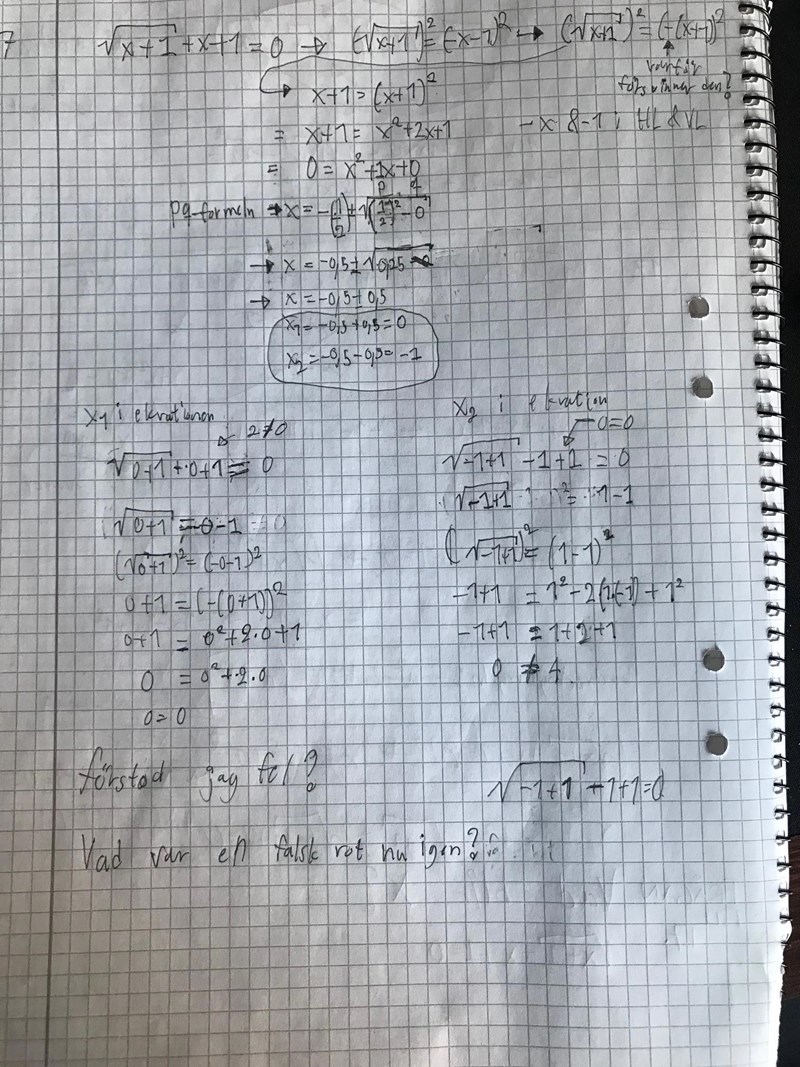 7 √(x+1) + x+1 = 0 → (√(x+1))² = (-x-1)² → (√(x+1))² = (-(x+1))²
varför försvinner den?
→ x+1 = (x+1)²
= x+1 = x²+2x+1 -x & -1 i HL & VL
= 0 = x²+1x+0
p q
pq-formeln → x = -(1/2) ± √((1/2)² - 0)
→ x = -0,5 ± √(0,25 - 0)
→ x = -0,5 ± 0,5
x₁ = -0,5+0,5 = 0
x₂ = -0,5-0,5 = -1
x₁ i ekvationen
2≠0
√(0+1) + 0+1 = 0
√(0+1) = -0-1
(√(0+1))² = (-0-1)²
0+1 = (-(0+1))²
0+1 = 0²+2·0+1
0 = 0²+2·0
0=0
x₂ i ekvation
0=0
√(-1+1) -1+1 = 0
√(-1+1) = 1-1
(√(-1+1))² = (1-1)²
-1+1 = 1²-2(1·(-1)) + 1²
-1+1 = 1+2+1
0 ≠ 4
förstod jag fel?
√(-1+1) -1+1=0
Vad var en falsk rot nu igen?